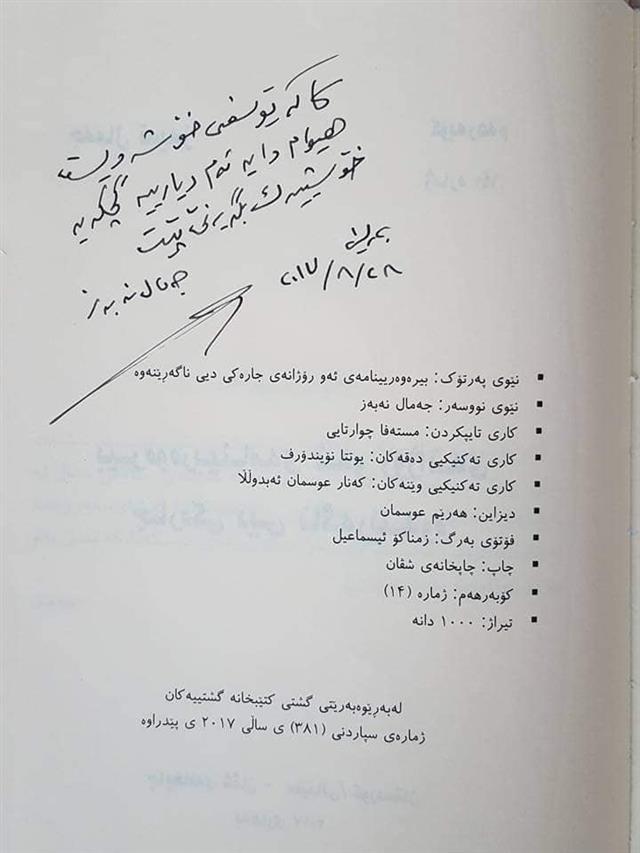 کاکە یوسفی خۆشەویست
هیوام وایە ئەم دیارییە گچکەیە
خۆشییەك بگەیەنێتێت
بەرلین
٢٠١٧/٨/٢٨
جەمال نەبەز
▪ نێوی پەرتۆک: بیرەوەریینامەی ئەو رۆژانەی جارەکی دیی ناگەڕێنەوە
▪ نێوی نووسەر: جەمال نەبەز
▪ کاری تایپکردن: مستەفا چوارتایی
▪ کاری تەکنیکیی دەقەکان: یوتتا نۆیندۆرف
▪ کاری تەکنیکیی وێنەکان: کەنار عوسمان ئەبدوڵڵا
▪ دیزاین: هەرێم عوسمان
▪ فۆتۆی بەرگ: زمناکۆ ئیسماعیل
▪ چاپ: چاپخانەی شڤان
▪ کۆبەرهەم: ژمارە (١٤)
▪ تیراژ: ١٠٠٠ دانە
لەبەڕێوەبەرێتی گشتی کتێبخانە گشتییەکان
ژمارەی سپاردنی (٣٨١) ی ساڵی ٢٠١٧ ی پێدراوە